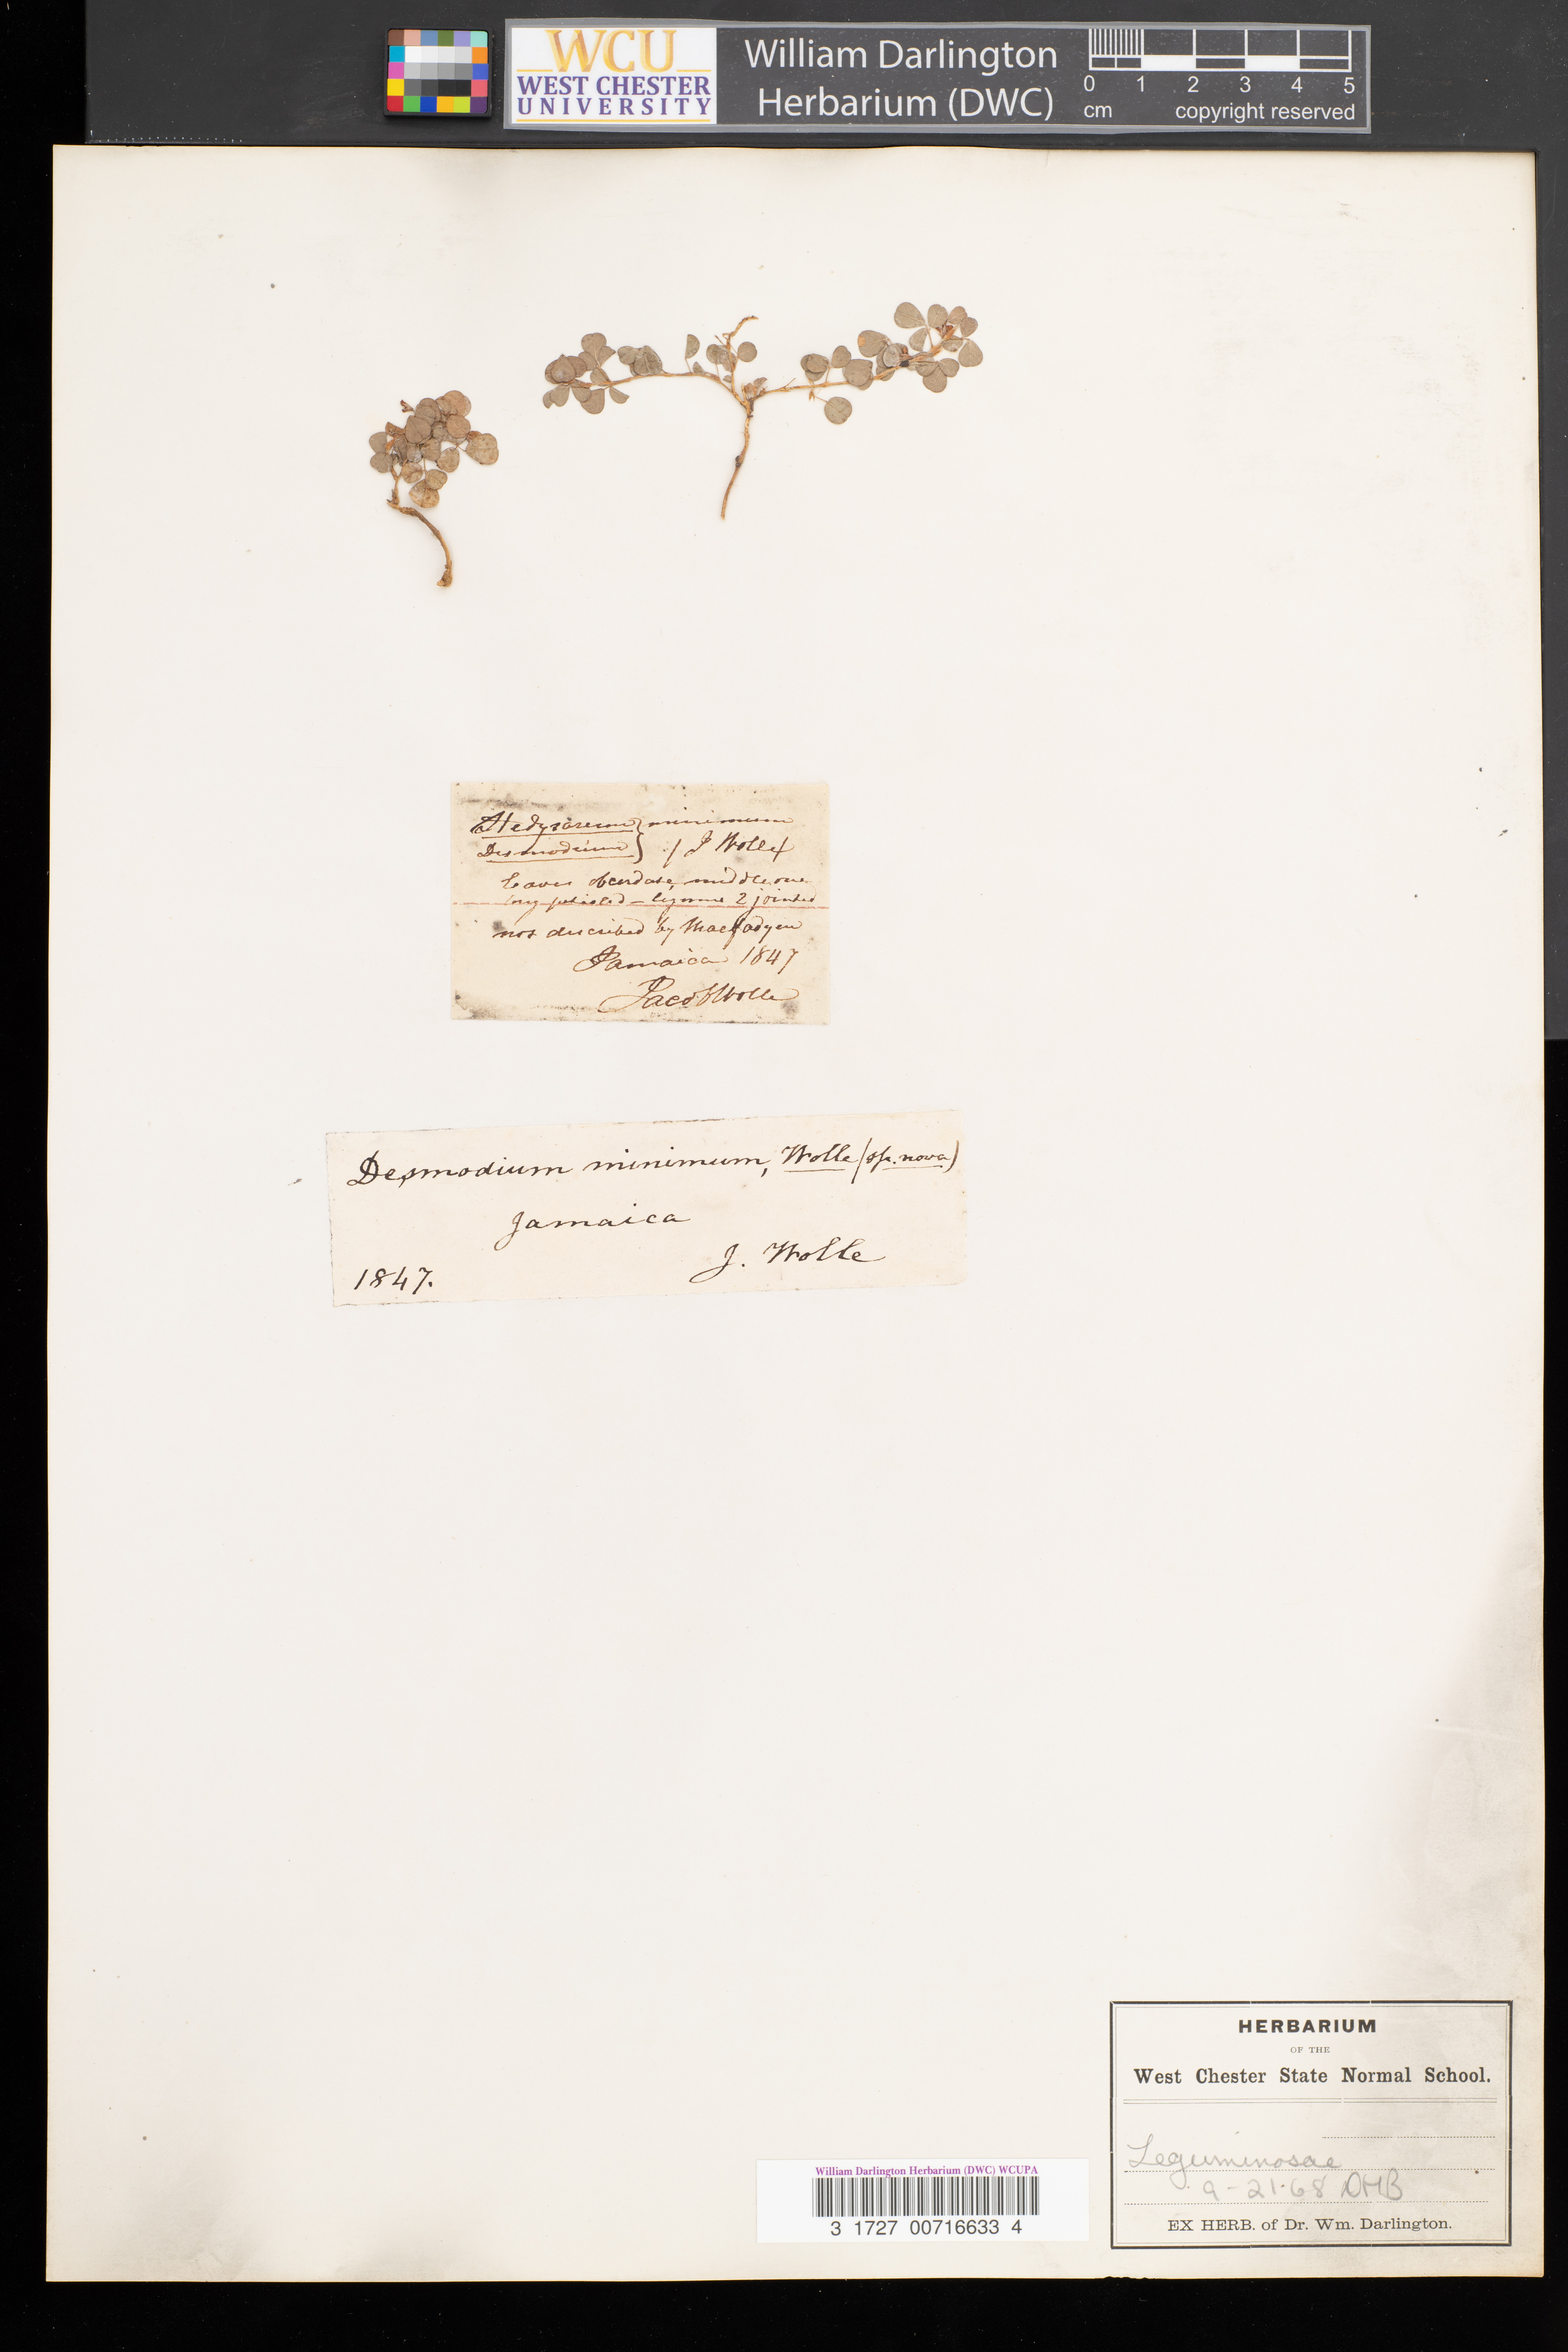 WCU
WEST CHESTER
UNIVERSITY
William Darlington
Herbarium (DWC)
0 1 2 3 4 5
cm copyright reserved
Hedysarum } minimum
Desmodium } / J Wolle /
leaves obcordate, middle one
long petioled – legume 2 jointed
not described by Macfadyen
Jamaica 1847
Jacob Wolle
Desmodium minimum, Wolle (sp. nova)
Jamaica
J. Wolle
1847.
HERBARIUM
OF THE
West Chester State Normal School.
Leguminosae
9-21-68 DMB
EX HERB. of Dr. Wm. Darlington.
William Darlington Herbarium (DWC) WCUPA
3 1727 00716633 4